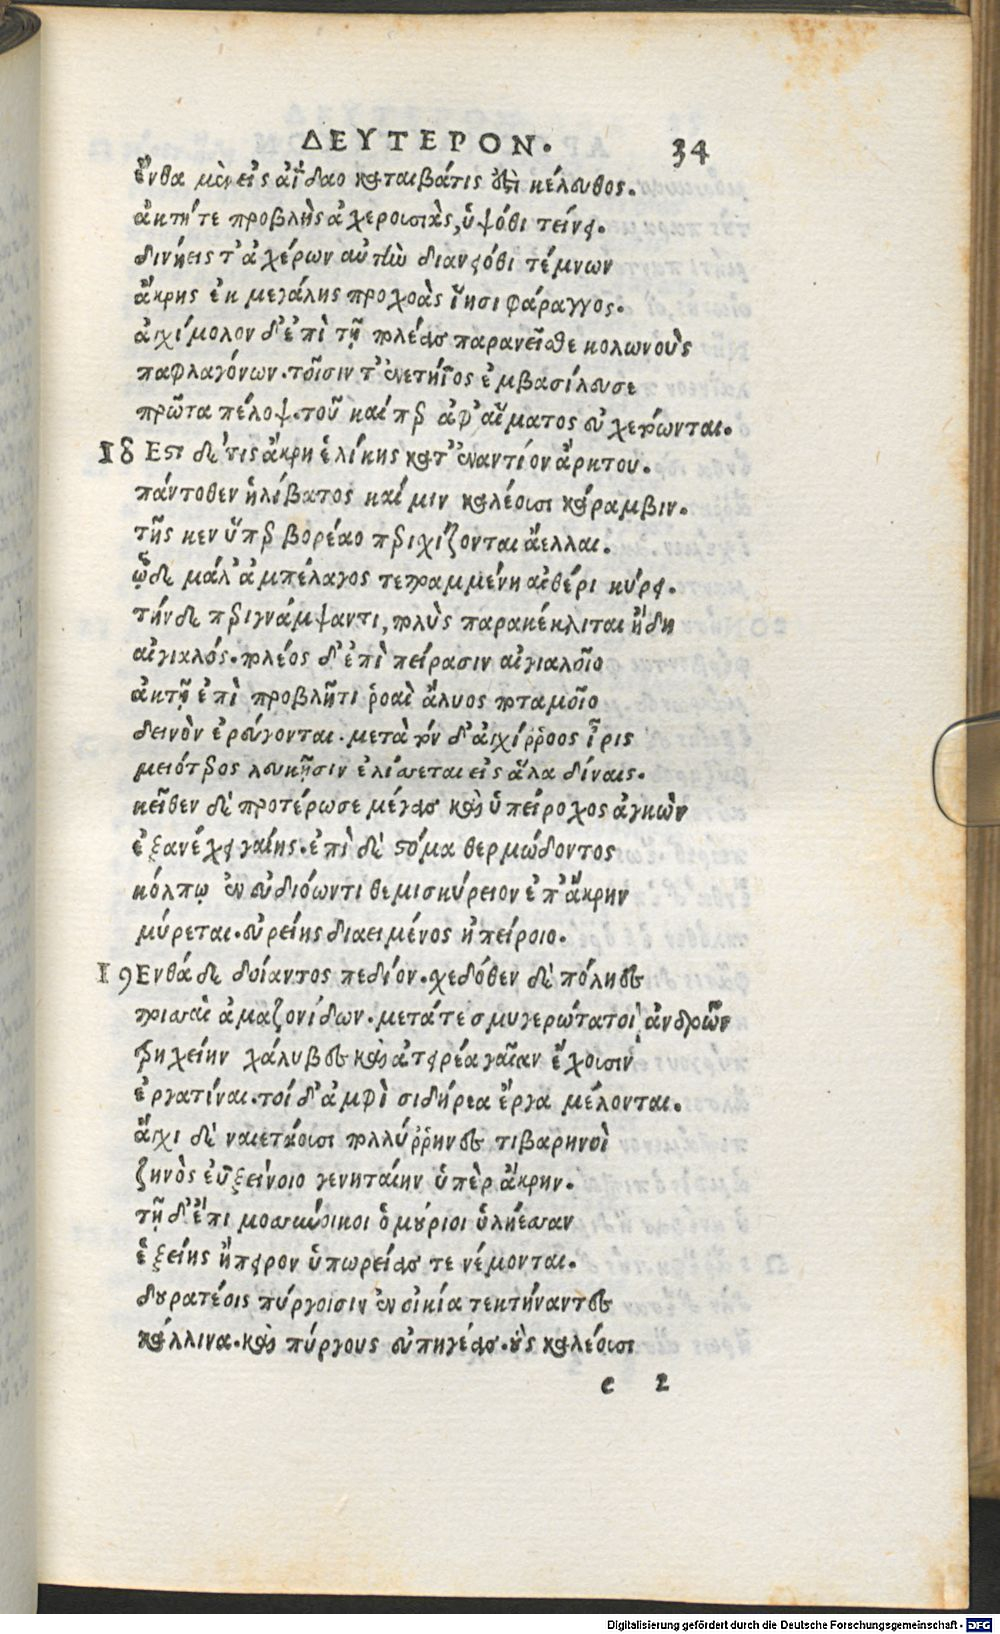 ΔΕΥΤΕΡΟΝ. 34
ἔνθα μὲν εἰς ἀΐδαο καταιβάτις ἐστὶ κέλευθος.
ἀκτή τε προβλὴς ἀχερουσιὰς, ὑψόθι τείνει.
δινήεις τ' ἀχέρων αὐτὴν διανειόθι τέμνων
ἄκρης ἐκ μεγάλης προχοὰς ἵησι φάραγγος.
ἀγχίμολον δ' ἐπὶ τῇ πλέας παρανεῖσθε κολωνοὺς
παφλαγόνων. τοῖσίν τ' ἐνετήϊος ἐμβασίλευσε
πρῶτα πέλοψ. τοῦ καί περ ἀφ' αἵματος εὐχετόωνται.
18 Εστι δέ τις ἄκρη ἑλίκης κατ' ἐναντίον ἄρκτου.
πάντοθεν ἠλίβατος καί μιν καλέουσι κάραμβιν.
τῆς κεν ὕπερ βορέαο περισχίζονται ἄελλαι.
ᾧδε μάλ' ἀμπέλαγος τετραμμένη αἰθέρι κύρει.
τήνδε περιγνάμψαντι, πολὺς παρακέκλιται ἤδη
αἰγιαλός. πολέος δ' ἐπὶ πείρασιν αἰγιαλοῖο
ἀκτῇ ἐπὶ προβλῆτι ῥοαὶ ἅλυος ποταμοῖο
δεινὸν ἐρεύγονται. μετὰ τὸν δ' ἀγχίῤῥοος ἶρις
μειότερος λευκῇσιν ἑλίσσεται εἰς ἅλα δίναις.
κεῖθεν δὲ προτέρωσε μέγας καὶ ὑπείροχος ἀγκὼν
ἐξανέχει γαίης. ἐπὶ δὲ στόμα θερμώδοντος
κόλπῳ ἐν εὐδιόωντι θεμισκύρειον ἐπ' ἄκρην
μύρεται. εὐρείης διαειμένος ἠπείροιο.
19 Ενθά δε δοίαντος πεδίον. σχεδόθεν δὲ πόληες
τρισσαὶ ἀμαζονίδων. μετά τε σμυγερώτατοι ἀνδρῶν
τρηχείην χάλυβες καὶ ἀτειρέα γαῖαν ἔχουσιν
ἐργατίναι. τοί δ' ἀμφὶ σιδήρεα ἔργα μέλονται.
ἄγχι δὲ ναιετάουσι πολλύῤῥηνες τιβαρηνοὶ
ζηνὸς ἐϋξείνοιο γενηταίην ὑπὲρ ἄκρην.
τῇ δ' ἔπι μοσσύνοικοι ὁμούριοι ὑλήεσσαν
ἑξείης ἤπειρον ὑπωρείας τε νέμονται.
δουρατέοις πύργοισιν ἐν οἰκία τεκτήναντες
κάλλινα. καὶ πύργους εὐπηγέας. οὓς καλέουσι
c 2
Digitalisierung gefördert durch die Deutsche Forschungsgemeinschaft - DFG